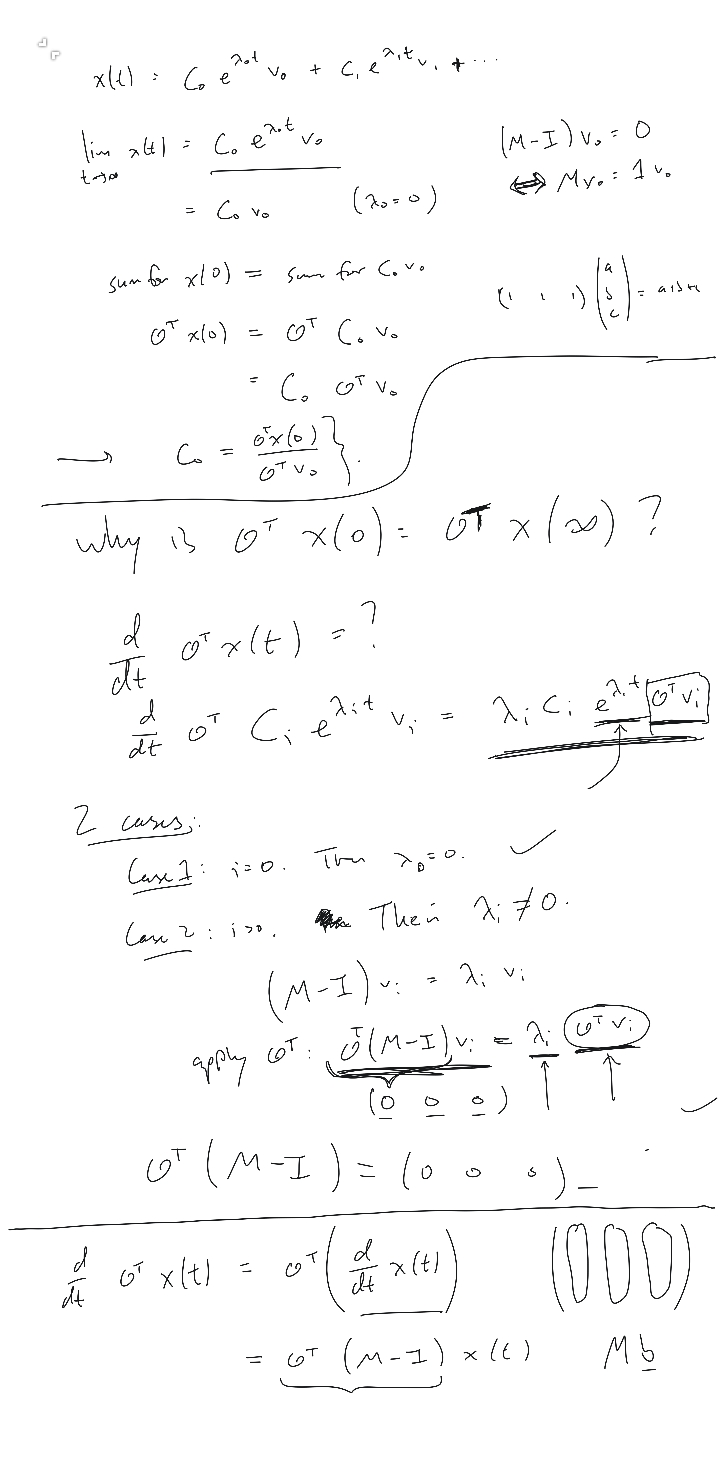 x(t) = C₀ e^{λ₀t} v₀ + C₁ e^{λ₁t} v₁ + ...
lim_{t→∞} x(t) = C₀ e^{λ₀t} v₀
(M-I) v₀ = 0
= C₀ v₀ (λ₀=0)
⟺ M v₀ = 1 v₀
sum for x(0) = sum for C₀ v₀
(1 1 1) (a b c) = a+b+c
𝟙ᵀ x(0) = 𝟙ᵀ C₀ v₀
= C₀ 𝟙ᵀ v₀
→ C₀ = 𝟙ᵀx(0) / 𝟙ᵀv₀ }.
why is 𝟙ᵀ x(0) = 𝟙ᵀ x(∞) ?
d/dt 𝟙ᵀ x(t) = ?
d/dt 𝟙ᵀ Cᵢ e^{λᵢt} vᵢ = λᵢ Cᵢ e^{λᵢt} 𝟙ᵀ vᵢ
2 cases:
Case 1: i=0. Then λ₀=0. ✓
Case 2: i>0. Then λᵢ ≠ 0.
(M-I) vᵢ = λᵢ vᵢ
apply 𝟙ᵀ: 𝟙ᵀ(M-I) vᵢ = λᵢ 𝟙ᵀ vᵢ
(0 0 0)
𝟙ᵀ (M-I) = (0 0 0)
d/dt 𝟙ᵀ x(t) = 𝟙ᵀ (d/dt x(t))
= 𝟙ᵀ (M-I) x(t)
M b